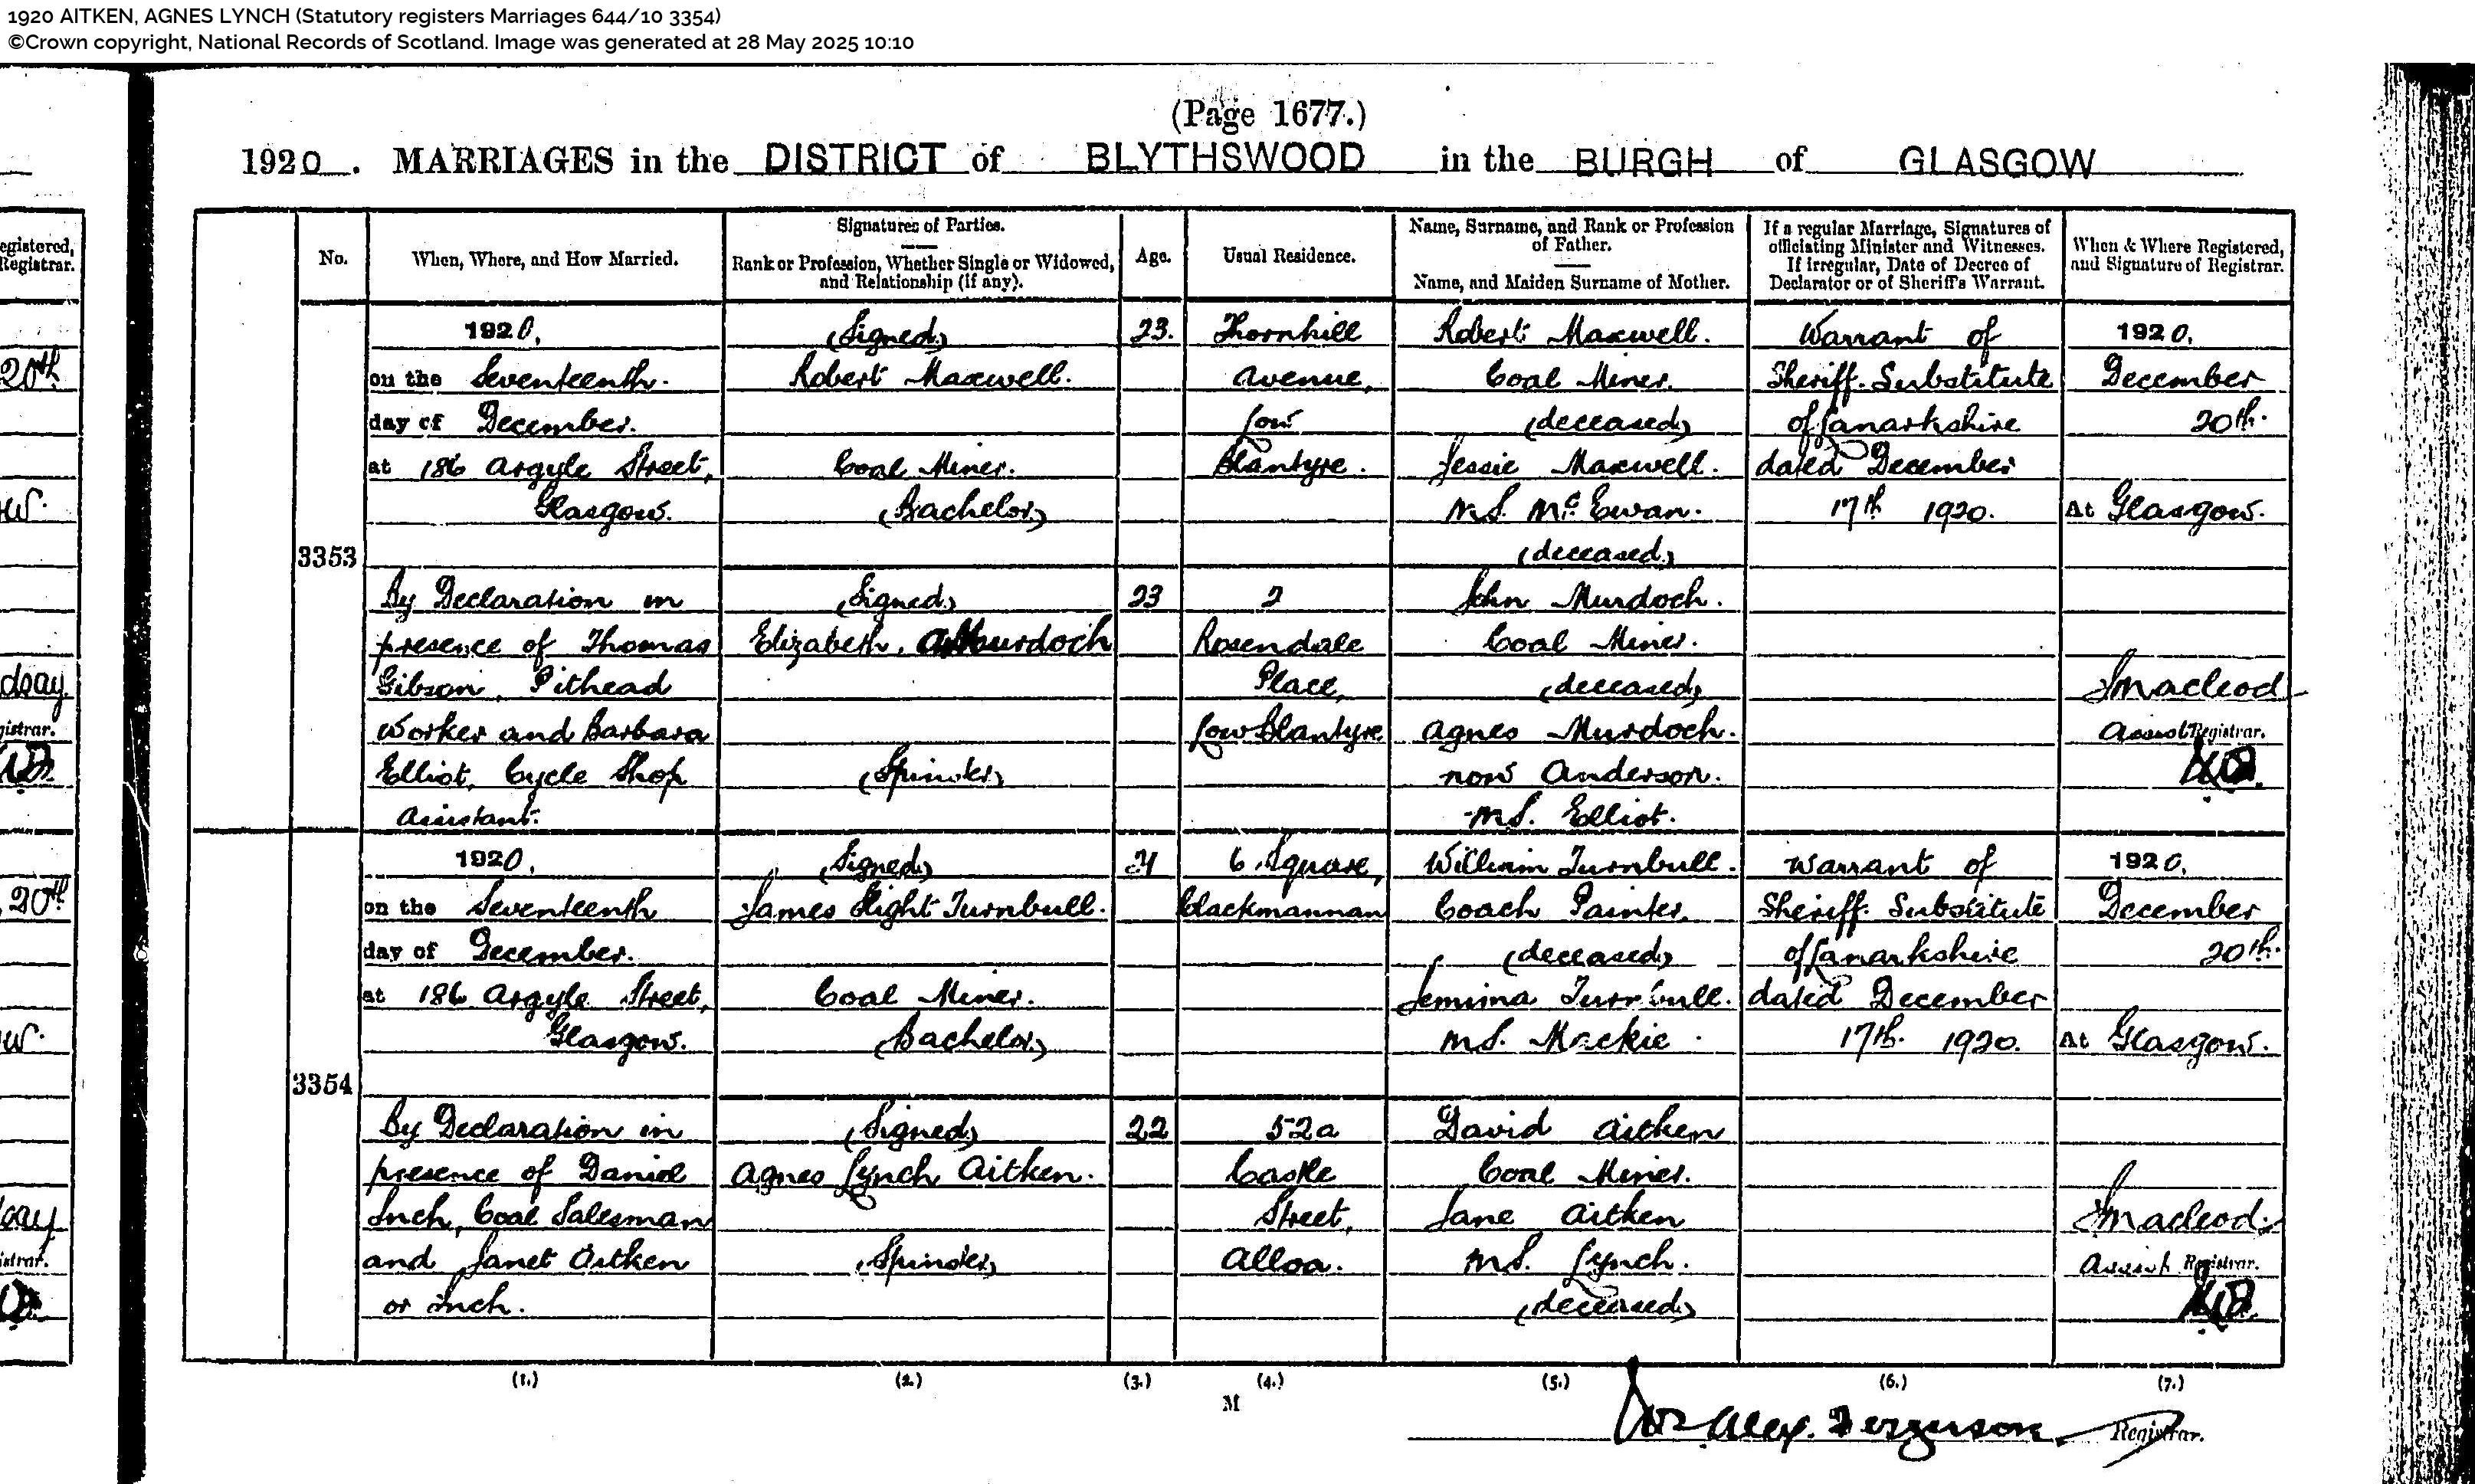 1920 AITKEN, AGNES LYNCH (Statutory registers Marriages 644/10 3354)
©Crown copyright, National Records of Scotland. Image was generated at 28 May 2025 10:10
(Page 1677.)
1920. MARRIAGES in the DISTRICT of BLYTHSWOOD in the BURGH of GLASGOW
No.
When, Where, and How Married.
Signatures of Parties.
Rank or Profession, Whether Single or Widowed,
and Relationship (if any).
Age.
Usual Residence.
Name, Surname, and Rank or Profession
of Father.
Name, and Maiden Surname of Mother.
If a regular Marriage, Signatures of
officiating Minister and Witnesses.
If irregular, Date of Decree of
Declarator or of Sheriff's Warrant.
When & Where Registered,
and Signature of Registrar.
3353
1920.
on the Seventeenth.
day of December.
at 186 Argyle Street,
Glasgow.
By Declaration in
presence of Thomas
Gibson, Pithead
Worker and Barbara
Elliot, Cycle Shop
Assistant.
(Signed)
Robert Maxwell.
Coal Miner.
(Bachelor)
(Signed)
Elizabeth. Murdoch
(Spinster)
23.
23
Thornhill
Avenue,
Low
Blantyre.
2
Rosendale
Place,
Low Blantyre
Robert Maxwell.
Coal Miner.
(deceased)
Jessie Maxwell.
M.S. McEwan.
(deceased)
John Murdoch.
Coal Miner.
(deceased)
Agnes Murdoch.
now Anderson.
M.S. Elliot.
Warrant of
Sheriff-Substitute
of Lanarkshire
dated December
17th 1920.
1920.
December
20th.
At Glasgow.
J Macleod
Assist Registrar.
3354
1920.
on the Seventeenth
day of December.
at 186 Argyle Street,
Glasgow.
By Declaration in
presence of Daniel
Inch, Coal Salesman
and Janet Aitken
or Inch.
(Signed)
James Hight Turnbull.
Coal Miner.
(Bachelor)
(Signed)
Agnes Lynch Aitken.
(Spinster)
21
22
6 Square,
Clackmannan
52a
Castle
Street,
Alloa.
William Turnbull.
Coach Painter,
(deceased)
Jemima Turnbull.
M.S. Mackie.
David Aitken
Coal Miner.
Jane Aitken
M.S. Lynch.
(deceased)
Warrant of
Sheriff-Substitute
of Lanarkshire
dated December
17th. 1920.
1920.
December
20th.
At Glasgow.
J Macleod.
Assist Registrar.
(1.) (2.) (3.) (4.) (5.) (6.) (7.)
M
Alex. Ferguson Registrar.